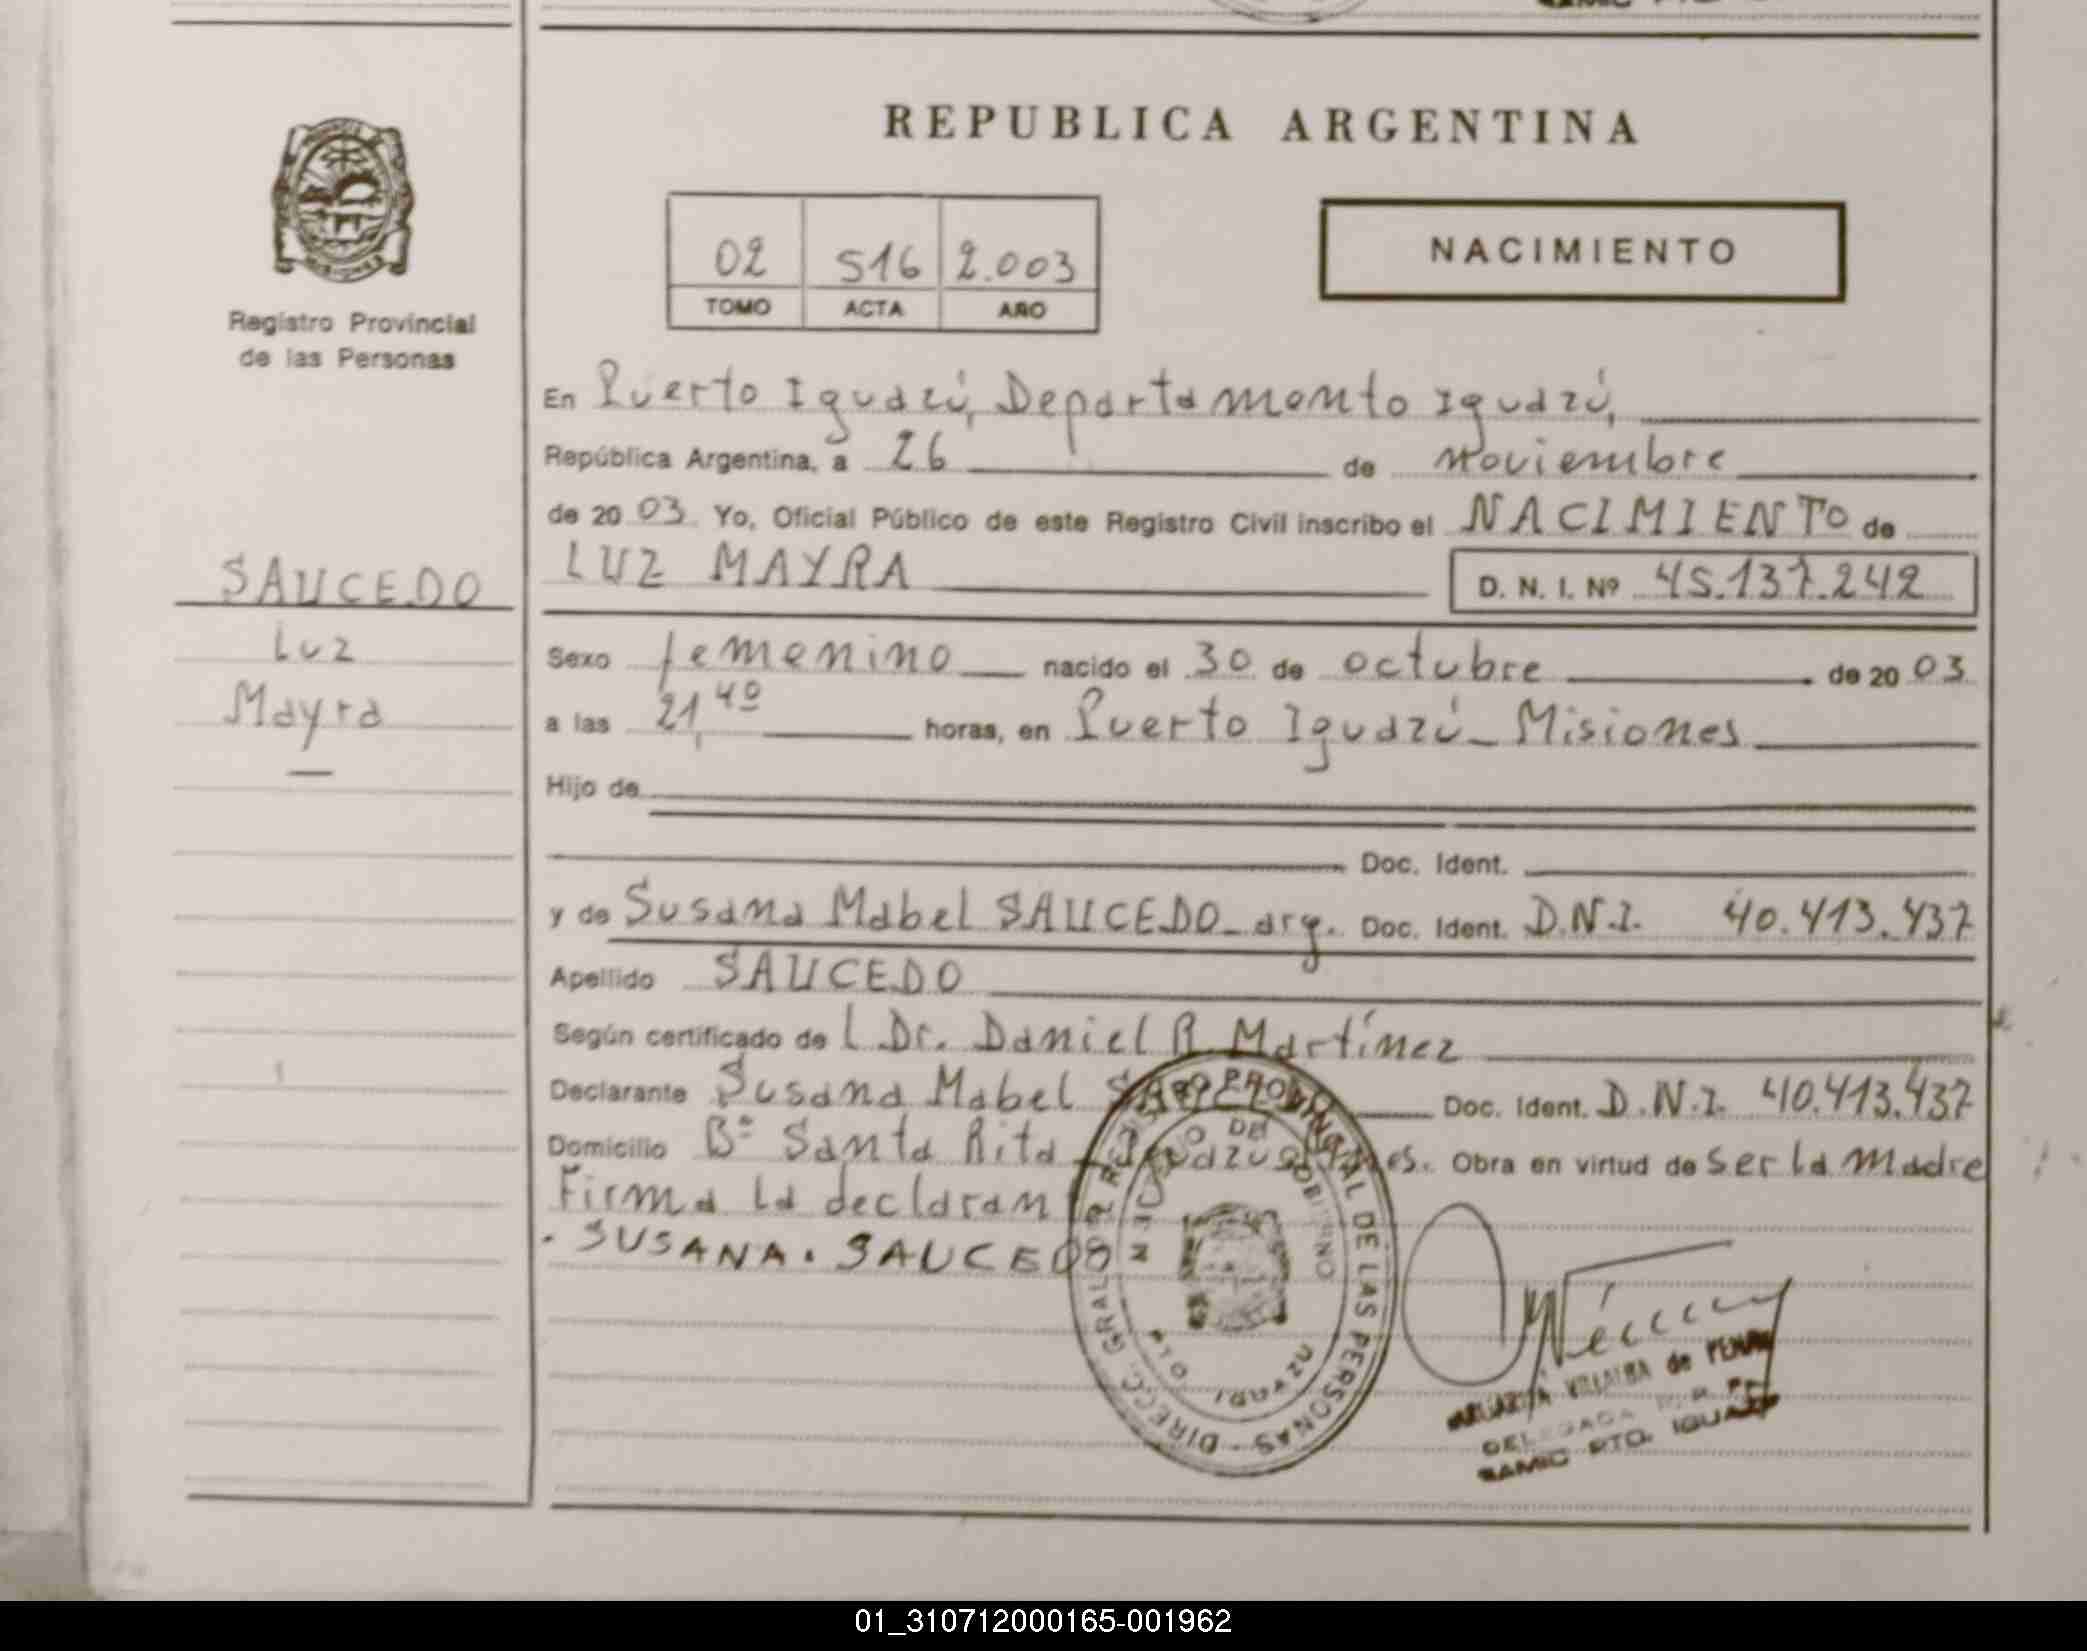 REPUBLICA ARGENTINA
02 516 2.003
TOMO ACTA AÑO
NACIMIENTO
Registro Provincial
de las Personas
SAUCEDO
Luz
Mayra
En Puerto Iguazú, Departamento Iguazú,
República Argentina, a 26 de noviembre
de 2003 Yo, Oficial Público de este Registro Civil inscribo el NACIMIENTO de
LUZ MAYRA D. N. I. Nº 45.137.242
Sexo femenino nacido el 30 de octubre de 2003
a las 21,40 horas, en Puerto Iguazú - Misiones
Hijo de
Doc. Ident.
y de Susana Mabel SAUCEDO - arg. Doc. Ident. D.N.I. 40.413.437
Apellido SAUCEDO
Según certificado de l Dr. Daniel R. Martínez
Declarante Susana Mabel Doc. Ident. D.N.I. 40.413.437
Domicilio Bº Santa Rita - Obra en virtud de ser la madre
Firma la
. SUSANA . SAUCEDO
DIRECC. GRAL. REGISTRO PROVINCIAL DE LAS PERSONAS
VILLALBA de
DELEGADA
SAMIC PTO. IGUAZU
01_310712000165-001962